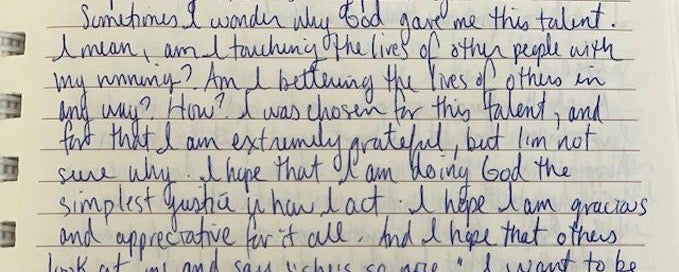 Sometimes I wonder why God gave me this talent.
I mean, am I touching the lives of other people with
my running? Am I bettering the lives of others in
any way? How? I was chosen for this talent, and
for that I am extremely grateful, but I'm not
sure why. I hope that I am doing God the
simplest justice in how I act. I hope I am gracious
and appreciative for it all. And I hope that others
look at me and say "she's so nice." I want to be